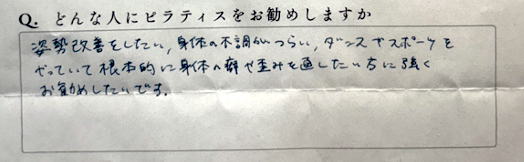 Q. どんな人にピラティスをお勧めしますか
姿勢改善をしたい, 身体の不調がつらい, ダンスやスポーツを
やっていて根本的に身体の癖や歪みを直したい方に強く
お勧めしたいです。